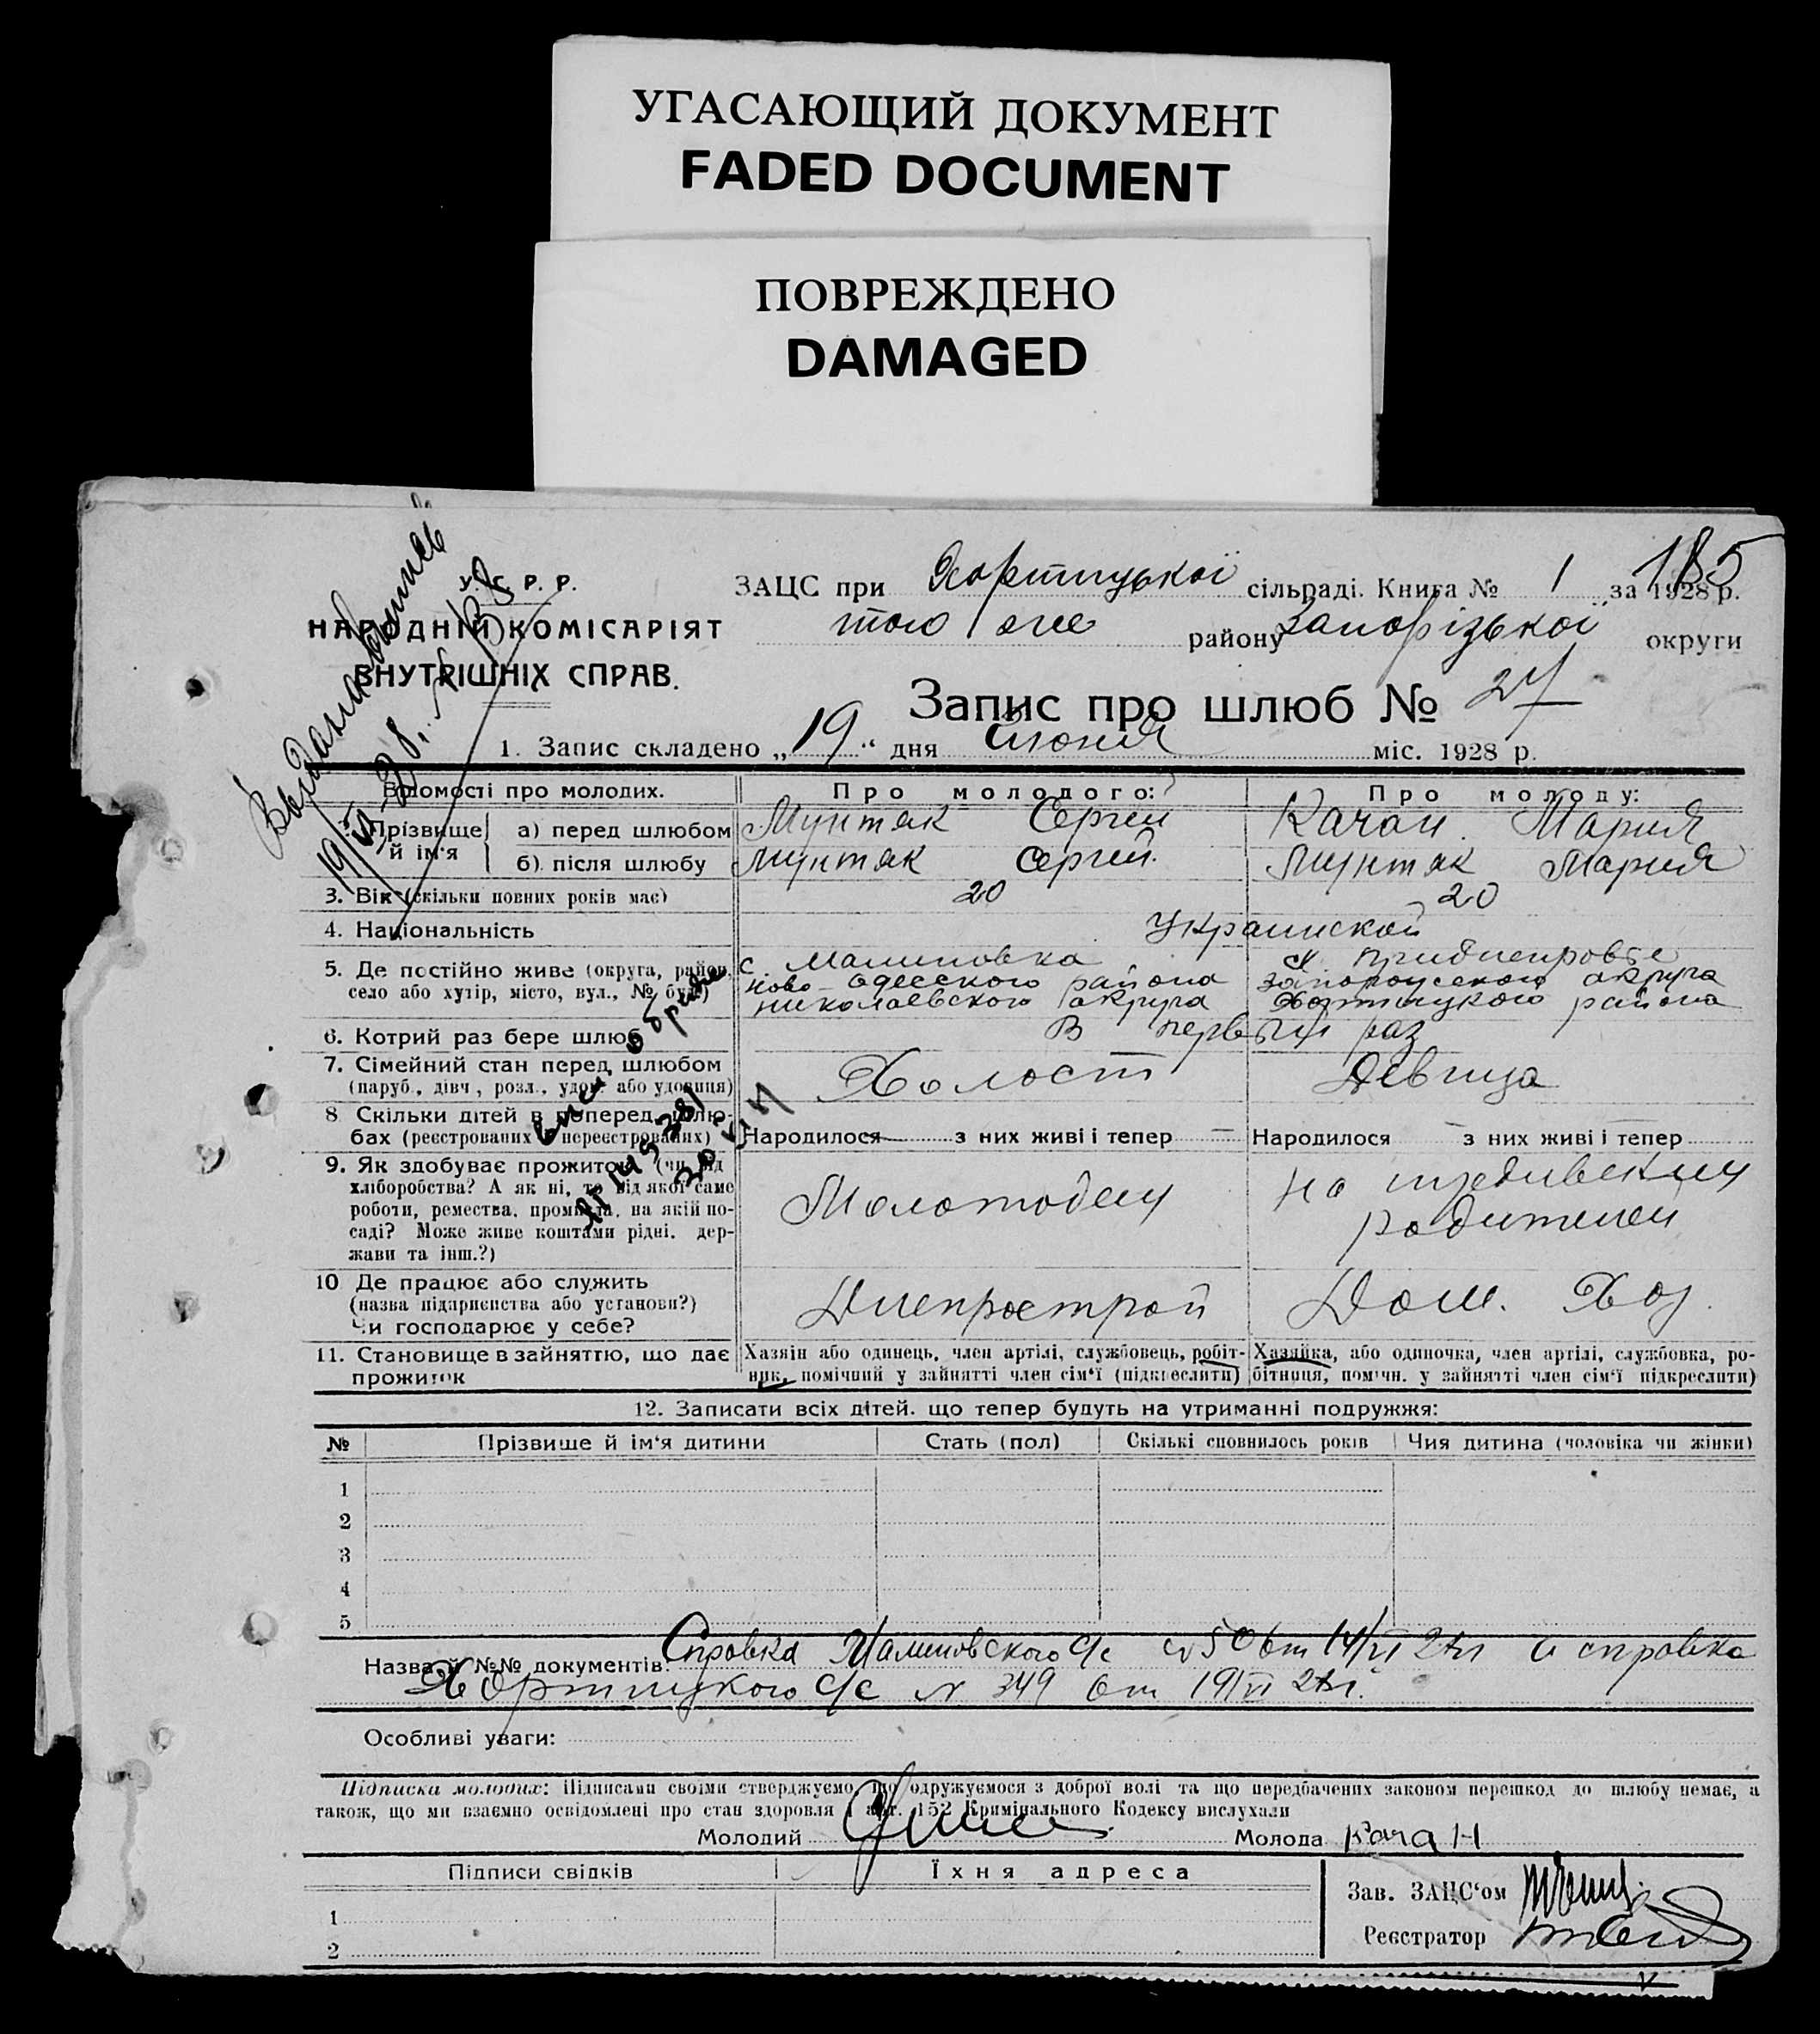 УГАСАЮЩИЙ ДОКУМЕНТ
FADED DOCUMENT
ПОВРЕЖДЕНО
DAMAGED
185
У. С. Р. Р.
НАРОДНІЙ КОМІСАРІЯТ
ВНУТРІШНІХ СПРАВ.
ЗАЦС при Хортицької сільраді. Книга № 1 за 1928 р.
того же району Запорізької округи
Запис про шлюб № 27
1. Запис складено „19“ дня Июня міс. 1928 р.
Відомості про молодих. Про молодого: Про молоду:
Прізвище й ім‘я
а) перед шлюбом Мунтяк Сергей Качан Мария
б) після шлюбу Мунтяк Сергей. Мунтяк Мария
3. Вік (скільки повних років має) 20 20
4. Національність Украинской
5. Де постійно живе (округа, район, село або хутір, місто, вул., № буд.)
с. Малиновка
Ново-Одесского района
Николаевского округа
Приднепровье
Запорожского округа
Хортицкого района
6. Котрий раз бере шлюб В первый раз
7. Сімейний стан перед шлюбом Холост Девица
(паруб., дівч., розл., удов. або удовиця)
8 Скільки дітей в поперед. шлю-
бах (реєстрованих й нереєстрованих) Народилося — з них живі і тепер — Народилося — з них живі і тепер
9. Як здобуває прожиток (чи від
хліборобства? А як ні, то від якої саме
роботи, ремества, промисла, на якій по-
саді? Може живе коштами рідні, дер-
жави та інш.?)
Молотобоец
На иждивении
родителей
10 Де працює або служить
(назва підприєнства або установи?)
Чи господарює у себе?
Днепрострой Дом. Хоз.
11. Становище в зайняттю, що дає
прожиток
Хазяїн або одинець, член артілі, службовець, робіт-
ник, помічний у зайнятті член сім‘ї (підкреслити)
Хазяйка, або одиночка, член артілі, службовка, ро-
бітниця, помічн. у зайнятті член сім‘ї підкреслити)
12. Записати всіх дітей, що тепер будуть на утриманні подружжя:
№ Прізвише й ім‘я дитини Стать (пол) Скількі сповнилось років Чия дитина (чоловіка чи жінки)
1
2
3
4
5
Назва й №№ документів: Справка Малиновского с/с № 50 от 14/VI 28г и справка
Хортицкого с/с № 349 от 19/VI 28г.
Особливі уваги:
Підписка молодих: Підписами своїми стверджуємо, що одружуємося з доброї волі та що передбачених законом перешкод до шлюбу немає, а
також, що ми взаємно освідомлені про стан здоровля і арт. 152 Кримінального Кодексу вислухали
Молодий Молода Качан
Підписи свідків Їхня адреса
Зав. ЗАЦС‘ом
1
Реєстратор
2